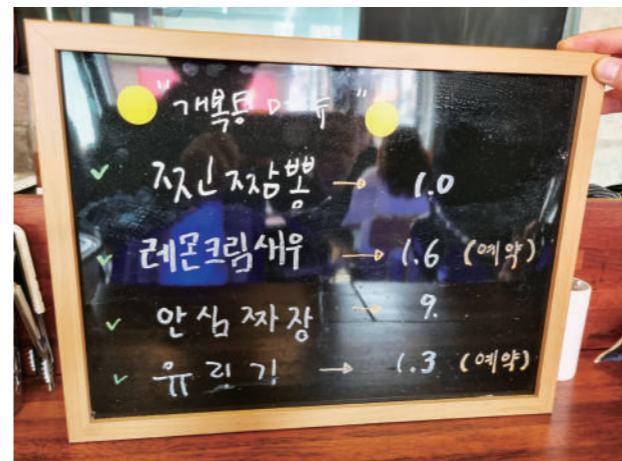 "개복동 메뉴"
찐인짬뽕 → 1.0
레몬크림새우 → 1.6 (예약)
안심짜장 → 9.
유린기 → 1.3 (예약)